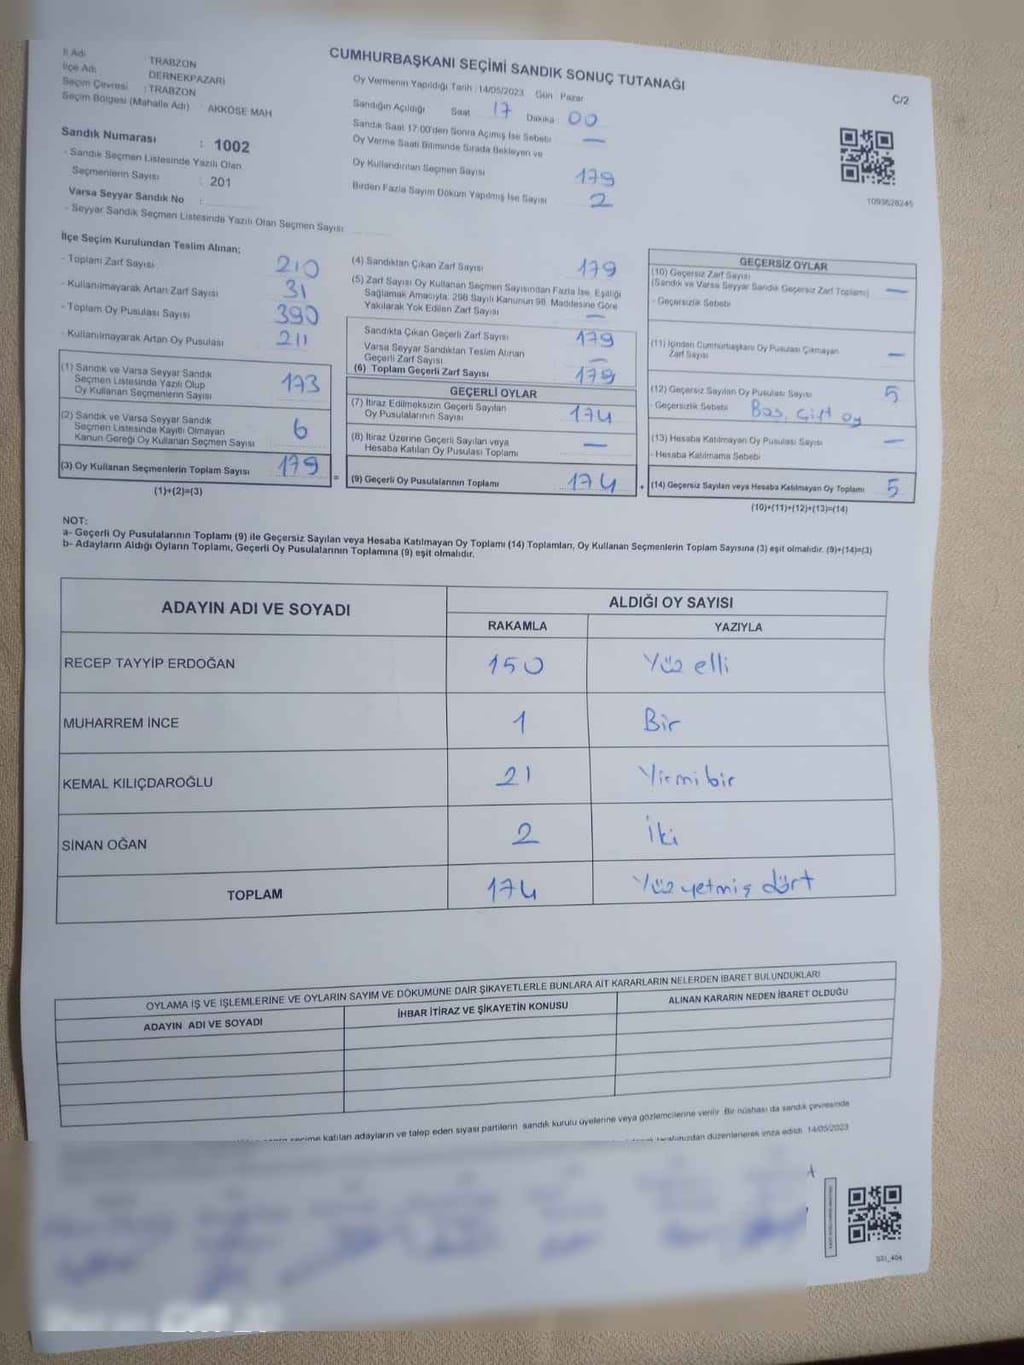 İl Adı : TRABZON
İlçe Adı : DERNEKPAZARI
Seçim Çevresi : TRABZON
Seçim Bölgesi (Mahalle Adı) AKKÖSE MAH
Sandık Numarası : 1002
- Sandık Seçmen Listesinde Yazılı Olan
Seçmenlerin Sayısı : 201
Varsa Seyyar Sandık No :
- Seyyar Sandık Seçmen Listesinde Yazılı Olan Seçmen Sayısı:
CUMHURBAŞKANI SEÇİMİ SANDIK SONUÇ TUTANAĞI
C/2
Oy Vermenin Yapıldığı Tarih : 14/05/2023 Gün : Pazar
Sandığın Açıldığı Saat : 17 Dakika : 00
Sandık Saat 17:00'den Sonra Açımış İse Sebebi : —
Oy Verme Saati Bitiminde Sırada Bekleyen ve
Oy Kullandırılan Seçmen Sayısı 179
Birden Fazla Sayım Döküm Yapılmış İse Sayısı 2
1093628245
İlçe Seçim Kurulundan Teslim Alınan;
- Toplam Zarf Sayısı 210
- Kullanılmayarak Artan Zarf Sayısı 31
- Toplam Oy Pusulası Sayısı 390
- Kullanılmayarak Artan Oy Pusulası 211
(1) Sandık ve Varsa Seyyar Sandık
Seçmen Listesinde Yazılı Olup
Oy Kullanan Seçmenlerin Sayısı 173
(2) Sandık ve Varsa Seyyar Sandık
Seçmen Listesinde Kayıtlı Olmayan
Kanun Gereği Oy Kullanan Seçmen Sayısı 6
(3) Oy Kullanan Seçmenlerin Toplam Sayısı 179
(1)+(2)=(3)
=
(4) Sandıktan Çıkan Zarf Sayısı 179
(5) Zarf Sayısı Oy Kullanan Seçmen Sayısından Fazla İse, Eşitliği
Sağlamak Amacıyla; 298 Sayılı Kanunun 98. Maddesine Göre
Yakılarak Yok Edilen Zarf Sayısı —
Sandıkta Çıkan Geçerli Zarf Sayısı 179
Varsa Seyyar Sandıktan Teslim Alınan
Geçerli Zarf Sayısı —
(6) Toplam Geçerli Zarf Sayısı 179
GEÇERLİ OYLAR
(7) İtiraz Edilmeksizin Geçerli Sayılan
Oy Pusulalarının Sayısı 174
(8) İtiraz Üzerine Geçerli Sayılan veya
Hesaba Katılan Oy Pusulası Toplamı —
(9) Geçerli Oy Pusulalarının Toplamı 174
+
GEÇERSİZ OYLAR
(10) Geçersiz Zarf Sayısı
(Sandık ve Varsa Seyyar Sandık Geçersiz Zarf Toplamı) —
- Geçersizlik Sebebi
(11) İçinden Cumhurbaşkanı Oy Pusulası Çıkmayan
Zarf Sayısı —
(12) Geçersiz Sayılan Oy Pusulası Sayısı 5
- Geçersizlik Sebebi Boş, Çift oy
(13) Hesaba Katılmayan Oy Pusulası Sayısı —
- Hesaba Katılmama Sebebi
(14) Geçersiz Sayılan veya Hesaba Katılmayan Oy Toplamı 5
(10)+(11)+(12)+(13)=(14)
NOT:
a- Geçerli Oy Pusulalarının Toplamı (9) ile Geçersiz Sayılan veya Hesaba Katılmayan Oy Toplamı (14) Toplamları, Oy Kullanan Seçmenlerin Toplam Sayısına (3) eşit olmalıdır. (9)+(14)=(3)
b- Adayların Aldığı Oyların Toplamı, Geçerli Oy Pusulalarının Toplamına (9) eşit olmalıdır.
ADAYIN ADI VE SOYADI ALDIĞI OY SAYISI
RAKAMLA YAZIYLA
RECEP TAYYİP ERDOĞAN 150 Yüz elli
MUHARREM İNCE 1 Bir
KEMAL KILIÇDAROĞLU 21 Yirmi bir
SİNAN OĞAN 2 İki
TOPLAM 174 Yüz yetmiş dört
OYLAMA İŞ VE İŞLEMLERİNE VE OYLARIN SAYIM VE DÖKÜMÜNE DAİR ŞİKAYETLERLE BUNLARA AİT KARARLARIN NELERDEN İBARET BULUNDUKLARI
ADAYIN ADI VE SOYADI İHBAR İTİRAZ VE ŞİKAYETİN KONUSU ALINAN KARARIN NEDEN İBARET OLDUĞU
seçime katılan adayların ve talep eden siyasi partilerin sandık kurulu üyelerine veya gözlemcilerine verilir. Bir nüshası da sandık çevresinde
tarafımızdan düzenlenerek imza edildi. 14/05/2023